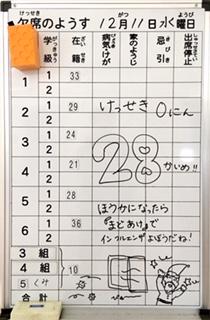 けっせき がつ にち すい ようび
欠席のようす 12月11日水曜日
学級 在籍 病気けが 家のようじ 忌引 出席停止
1 1 33
2
2 1 29 けっせき 0にん
2
3 1 24
2 21 28かいめ!!
4 1
2
5 1 28
2 ほうかになったら
6 1 36 まどあけで
2 インフルエンザよぼうだね!
3組
4組 10
5くみ
合計